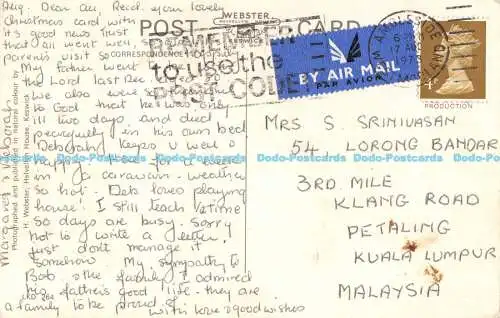 Aug. Dear all, Recd. your lovely
Christmas card with
it's good news Trust
that all went well,
parent's visit so
My father went
the Lord last Dec.
We also were so
to God that he was only
ill two days and died
peacefully in his own bed
Deborah, Keyo u were
happy here for a week
in a caravan - weather
so hot. Deb loves playing
house! I still teach ½ time
so days are busy. Sorry
not to write a letter,
just don't manage it
somehow. My sympathy to
Bob & the family I admired
his father's good life - they are
a family to be proud of.
with love & good wishes
Margaret & Deborah
POST CARD
WEBSTER
CORRESPONDENCE
Photographed and published in natural colour by
H. Webster, Helvellyn House, Keswick
LKD 264
REMEMBER
to use the
POST CODE
BY AIR MAIL
PAR AVION
17 AUG
197
4P
PRODUCTION
MRS S. SRINIVASAN
54 LORONG BANDAR
3RD. MILE
KLANG ROAD
PETALING
KUALA LUMPUR
MALAYSIA
Dodo-Postcards Dodo-Postcards Dodo-Postcards Dodo-Postcards